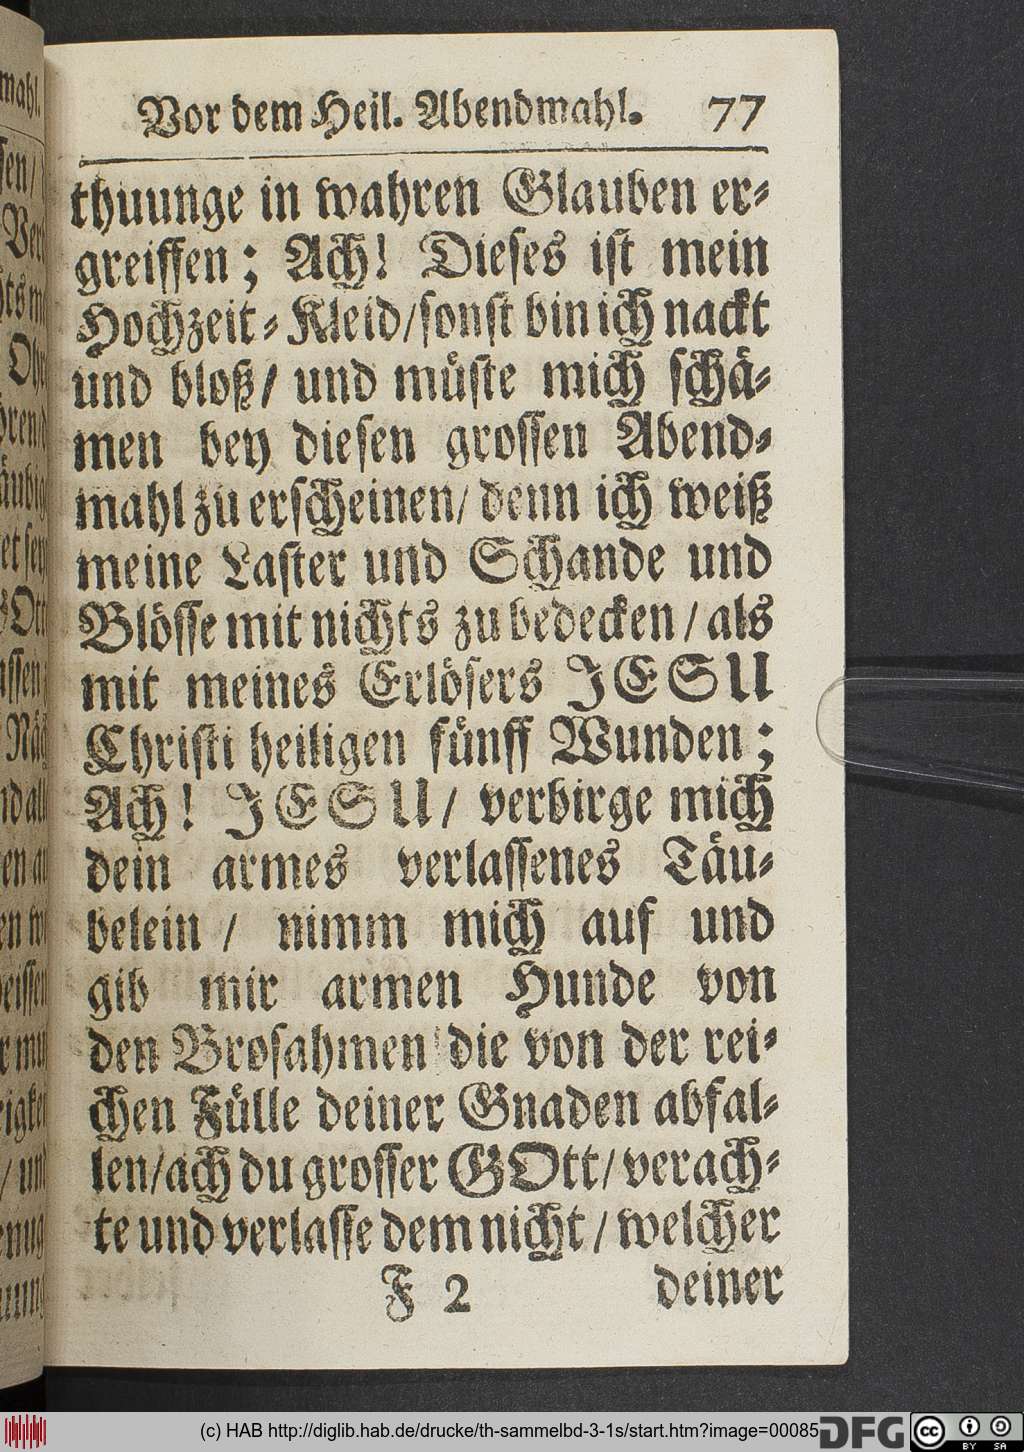 Vor dem Heil. Abendmahl. 77
thuunge in wahren Glauben er-
greiffen; Ach! Dieses ist mein
Hochzeit-Kleid/sonst bin ich nackt
und bloß/ und müste mich schä-
men bey diesen grossen Abend-
mahl zu erscheinen/ denn ich weiß
meine Laster und Schande und
Blösse mit nichts zu bedecken/ als
mit meines Erlösers JESU
Christi heiligen fünff Wunden;
Ach! JESU/ verbirge mich
dein armes verlassenes Täu-
belein/ nimm mich auf und
gib mir armen Hunde von
den Brosahmen die von der rei-
chen Fülle deiner Gnaden abfal-
len/ach du grosser GOtt/verach-
te und verlasse dem nicht/ welcher
F 2 deiner
(c) HAB http://diglib.hab.de/drucke/th-sammelbd-3-1s/start.htm?image=00085
DFG
cc BY SA